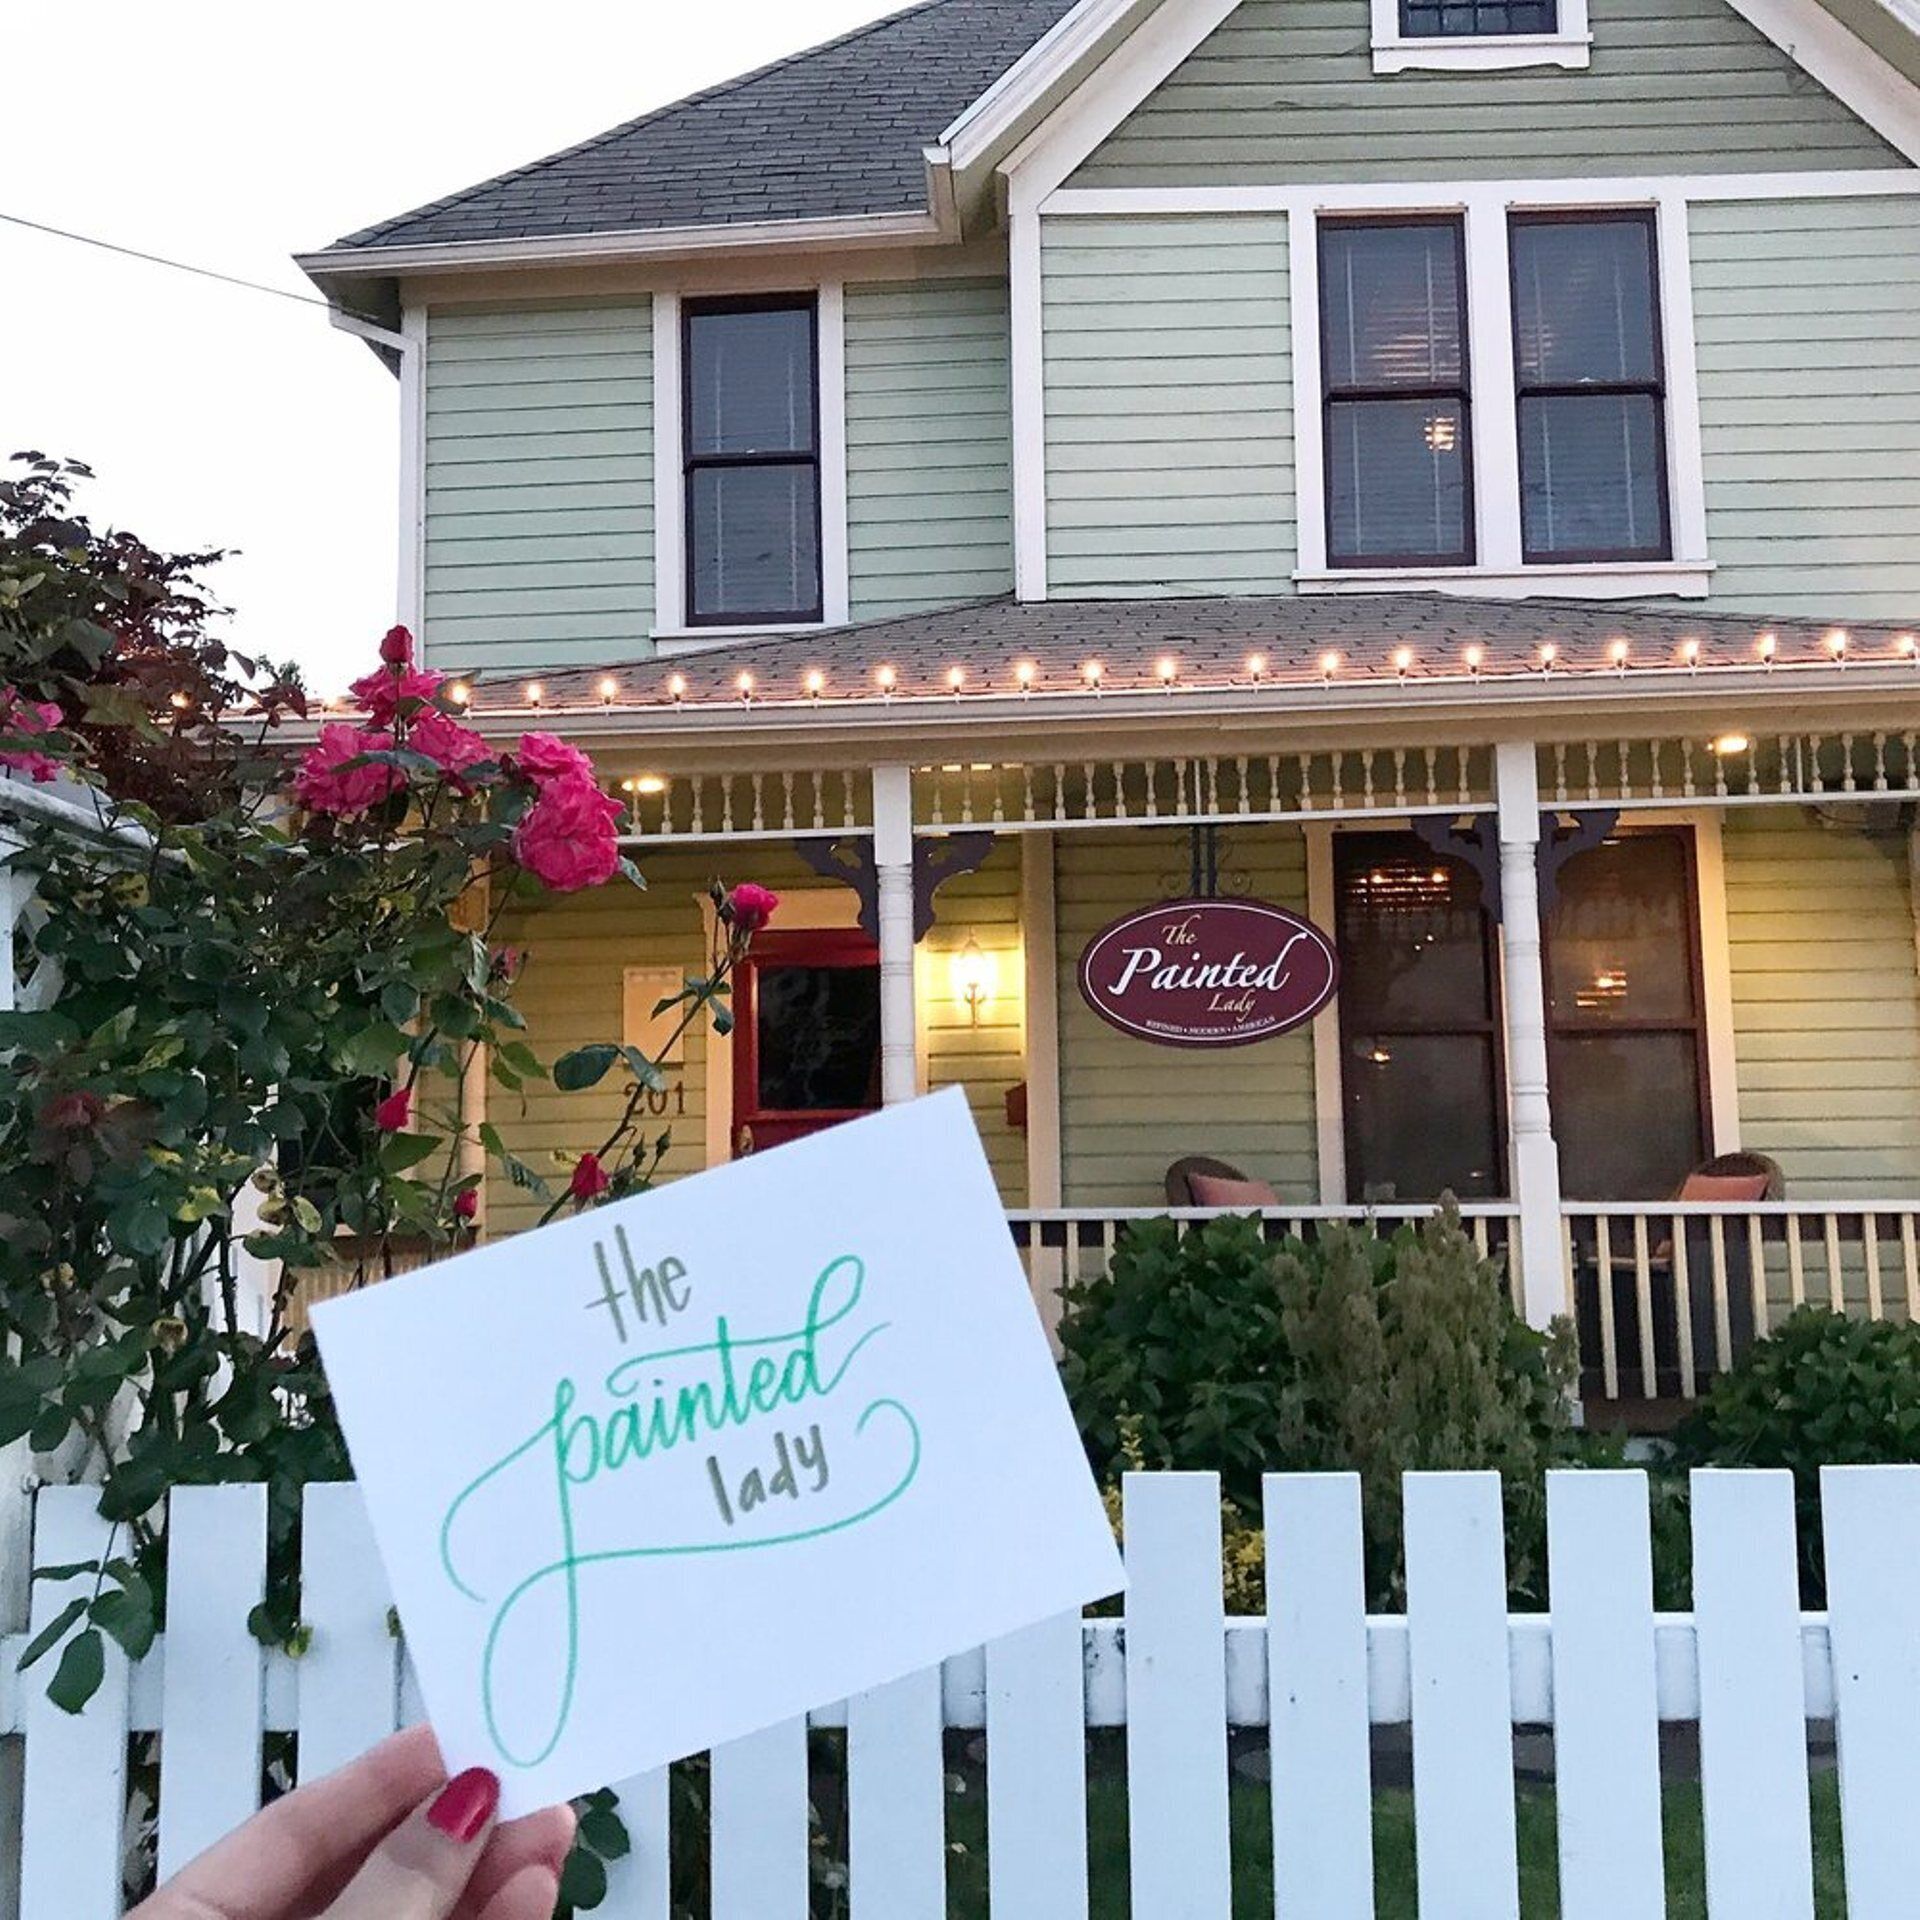 The
Painted
Lady
REFINED • MODERN • AMERICAN
201
the
painted
lady